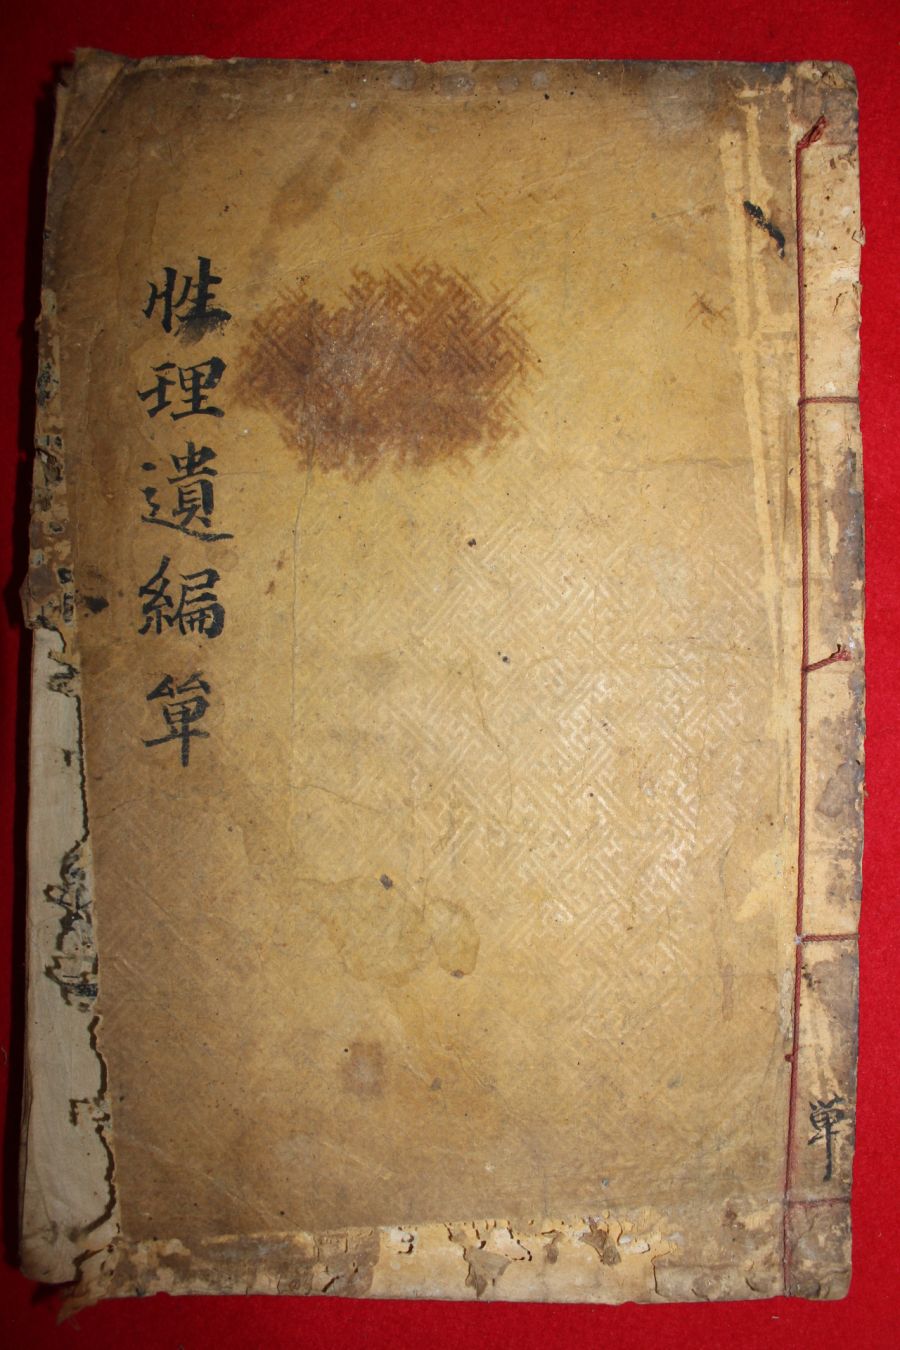 性理遺編單
單